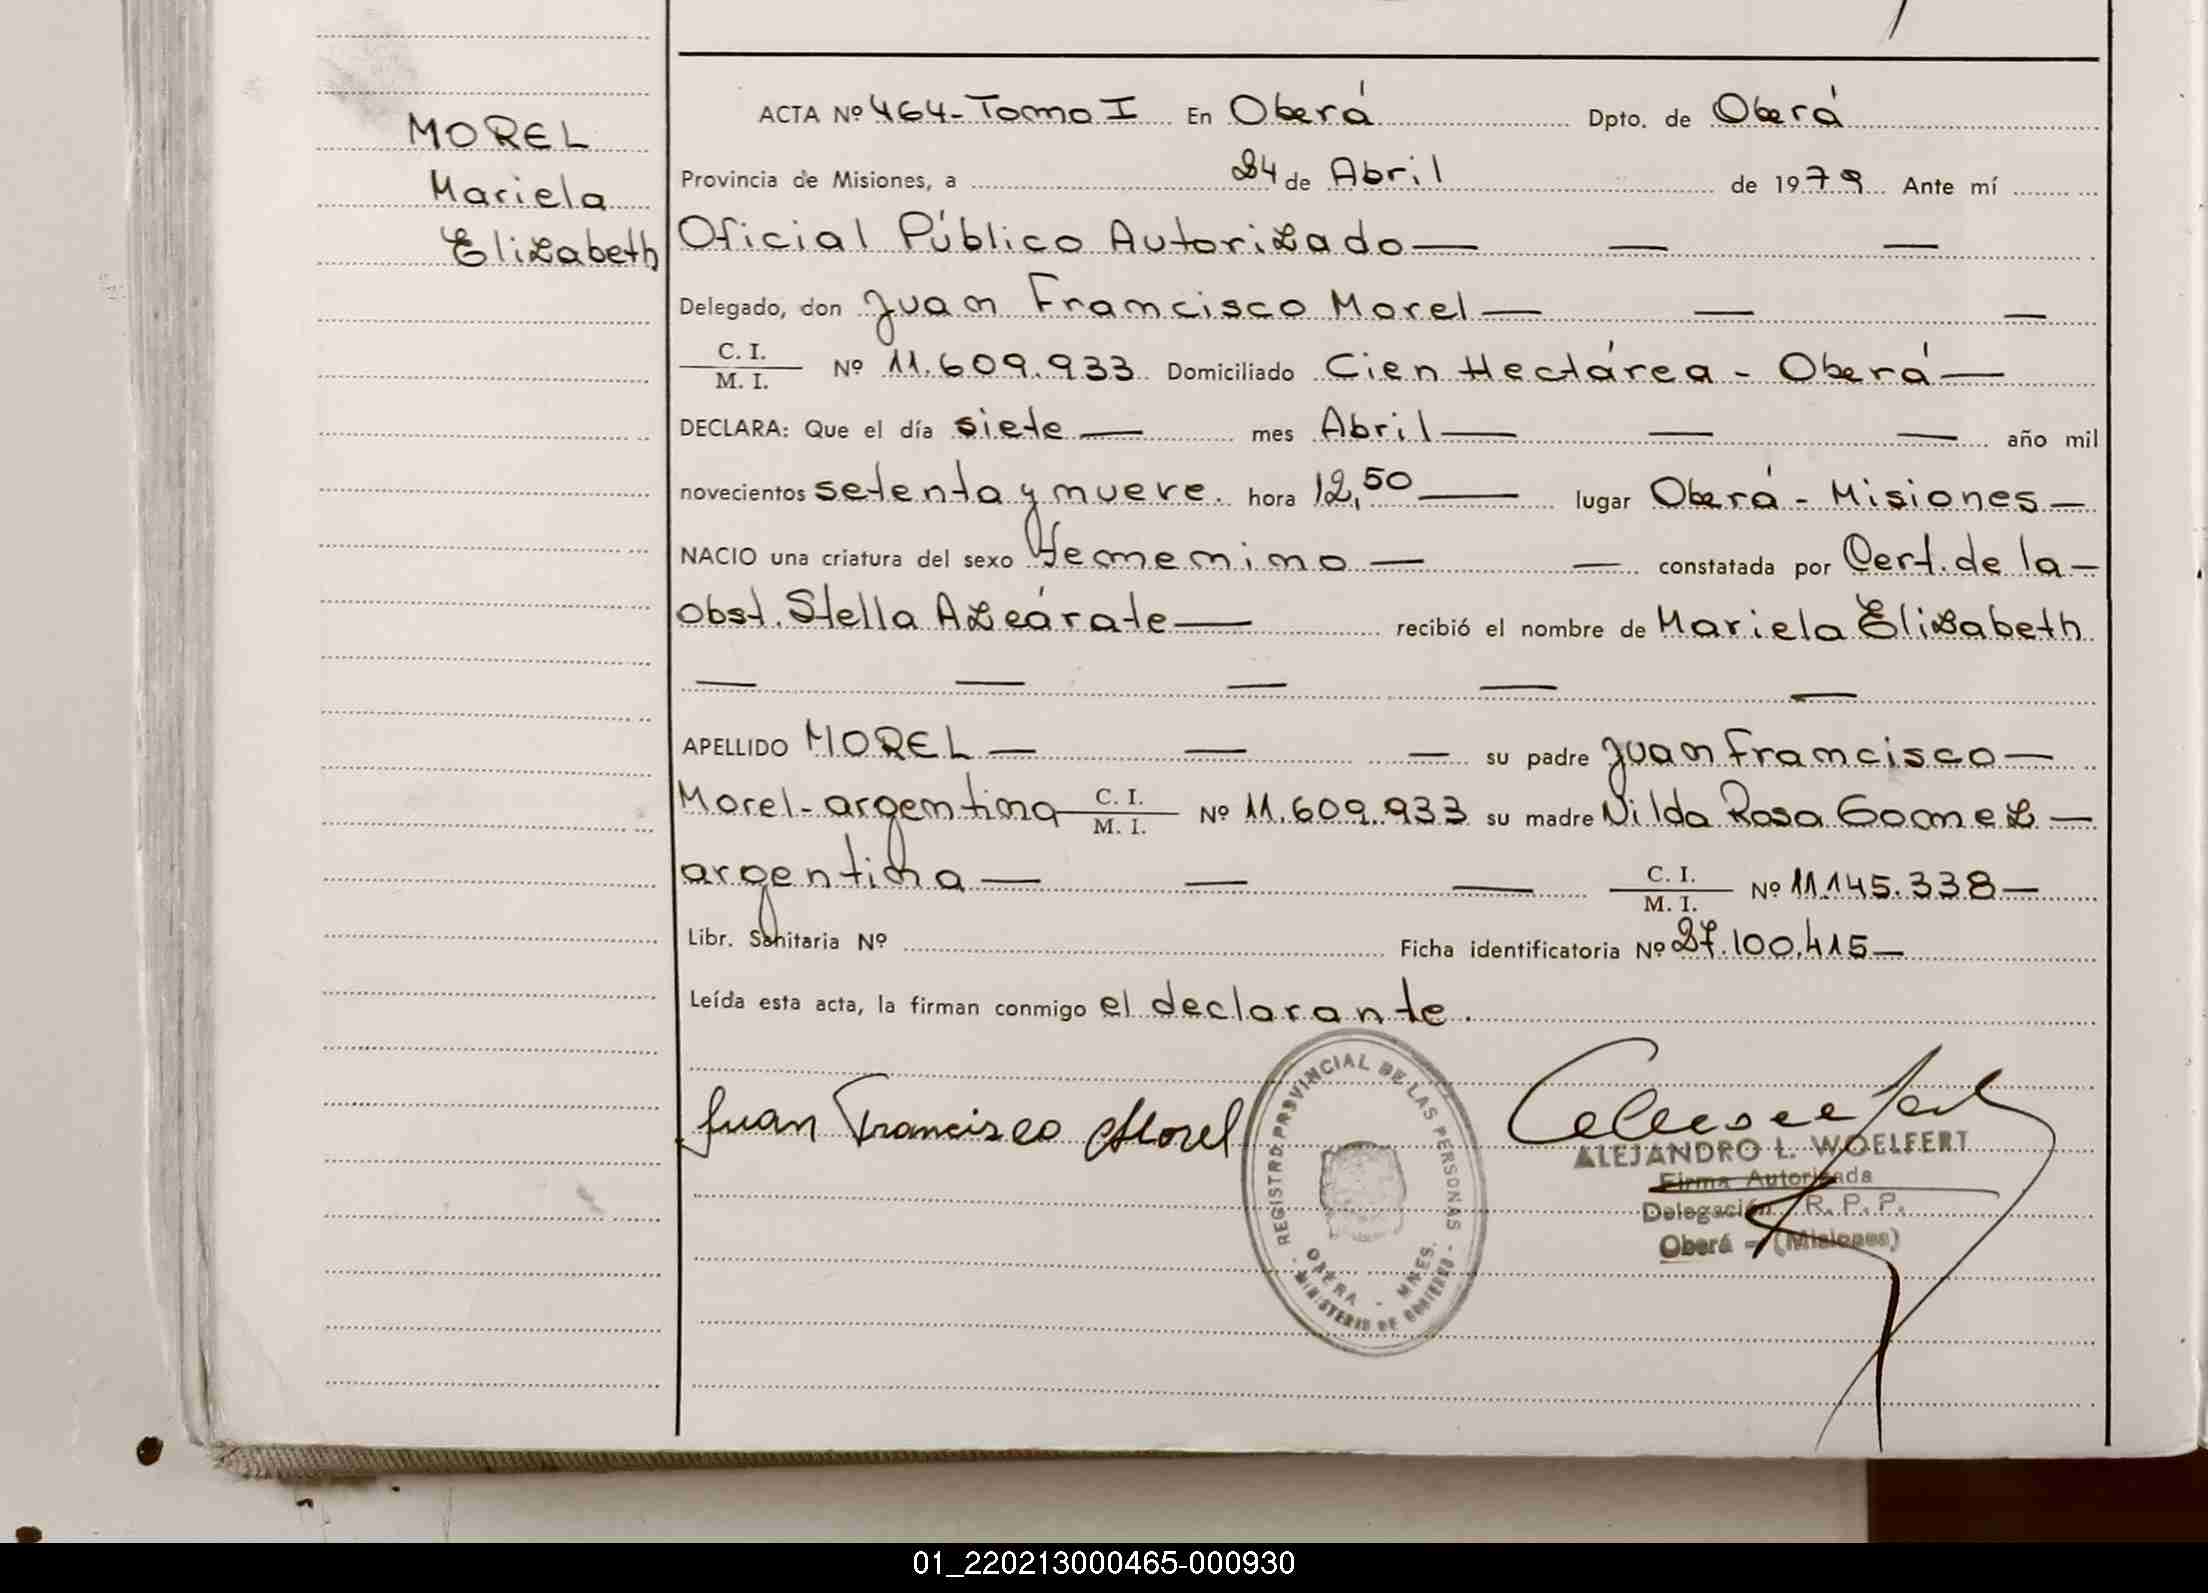 MOREL
Mariela
Elizabeth
ACTA Nº 464- Tomo I En Oberá Dpto. de Oberá
Provincia de Misiones, a 24 de Abril de 1979 Ante mí
Oficial Público Autorizado — — —
Delegado, don Juan Francisco Morel — — —
C. I.
M. I. Nº 11.609.933 Domiciliado Cien Hectárea - Oberá —
DECLARA: Que el día siete — mes Abril — — — año mil
novecientos setenta y nueve. hora 12,50 — lugar Oberá - Misiones —
NACIO una criatura del sexo femenino — — constatada por Cert. de la —
obst. Stella Azcárate — recibió el nombre de Mariela Elizabeth
— — — — —
APELLIDO MOREL — — — su padre Juan Francisco —
Morel - argentina C. I.
M. I. Nº 11.609.933 su madre Nilda Rosa Gomez —
argentina — — — C. I.
M. I. Nº 11.145.338 —
Libr. Sanitaria Nº Ficha identificatoria Nº 27.100.415 —
Leída esta acta, la firman conmigo el declarante.
Juan Francisco Morel
REGISTRO PROVINCIAL DE LAS PERSONAS
OBERA - MNES.
- MINISTERIO DE GOBIERNO -
ALEJANDRO L. WOELFERT
Firma Autorizada
Delegación R. P. P.
Oberá - (Misiones)
01_220213000465-000930